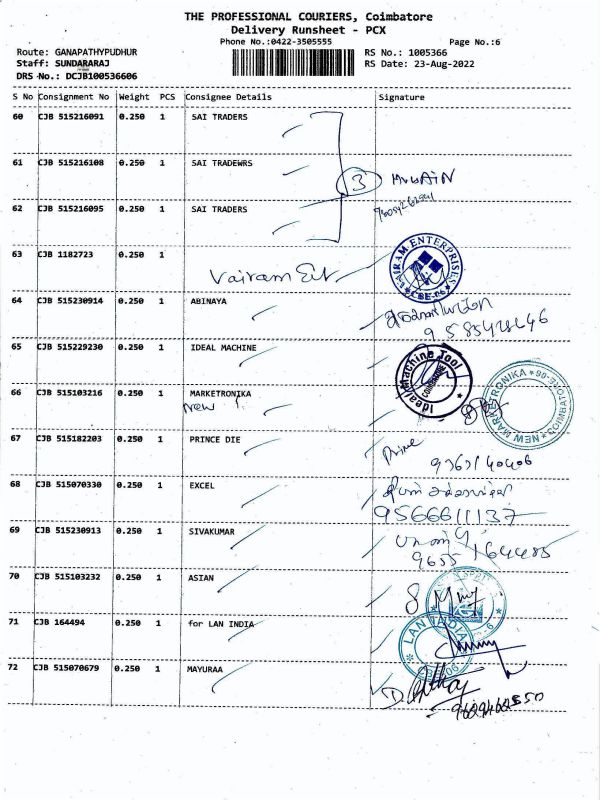 THE PROFESSIONAL COURIERS, Coimbatore
Delivery Runsheet - PCX
Phone No.:0422-3505555 Page No.:6
Route: GANAPATHYPUDHUR RS No.: 1005366
Staff: SUNDARARAJ RS Date: 23-Aug-2022
DRS No.: DCJB100536606
S No Consignment No Weight PCS Consignee Details Signature
60 CJB 515216091 0.250 1 SAI TRADERS
61 CJB 515216108 0.250 1 SAI TRADEWRS
3
62 CJB 515216095 0.250 1 SAI TRADERS
63 CJB 1182723 0.250 1
Vairam Ent VAIRAM ENTERPRISES CBE-06
64 CJB 515230914 0.250 1 ABINAYA
65 CJB 515229230 0.250 1 IDEAL MACHINE
Ideal Machine Tool COIMBATORE
66 CJB 515103216 0.250 1 MARKETRONIKA
New NEW MARKETRONIKA COIMBATORE-06
67 CJB 515182203 0.250 1 PRINCE DIE Prine
68 CJB 515070330 0.250 1 EXCEL
9566611137
69 CJB 515230913 0.250 1 SIVAKUMAR
9655 164485
70 CJB 515103232 0.250 1 ASIAN
71 CJB 164494 0.250 1 for LAN INDIA LAN INDIA
72 CJB 515070679 0.250 1 MAYURAA